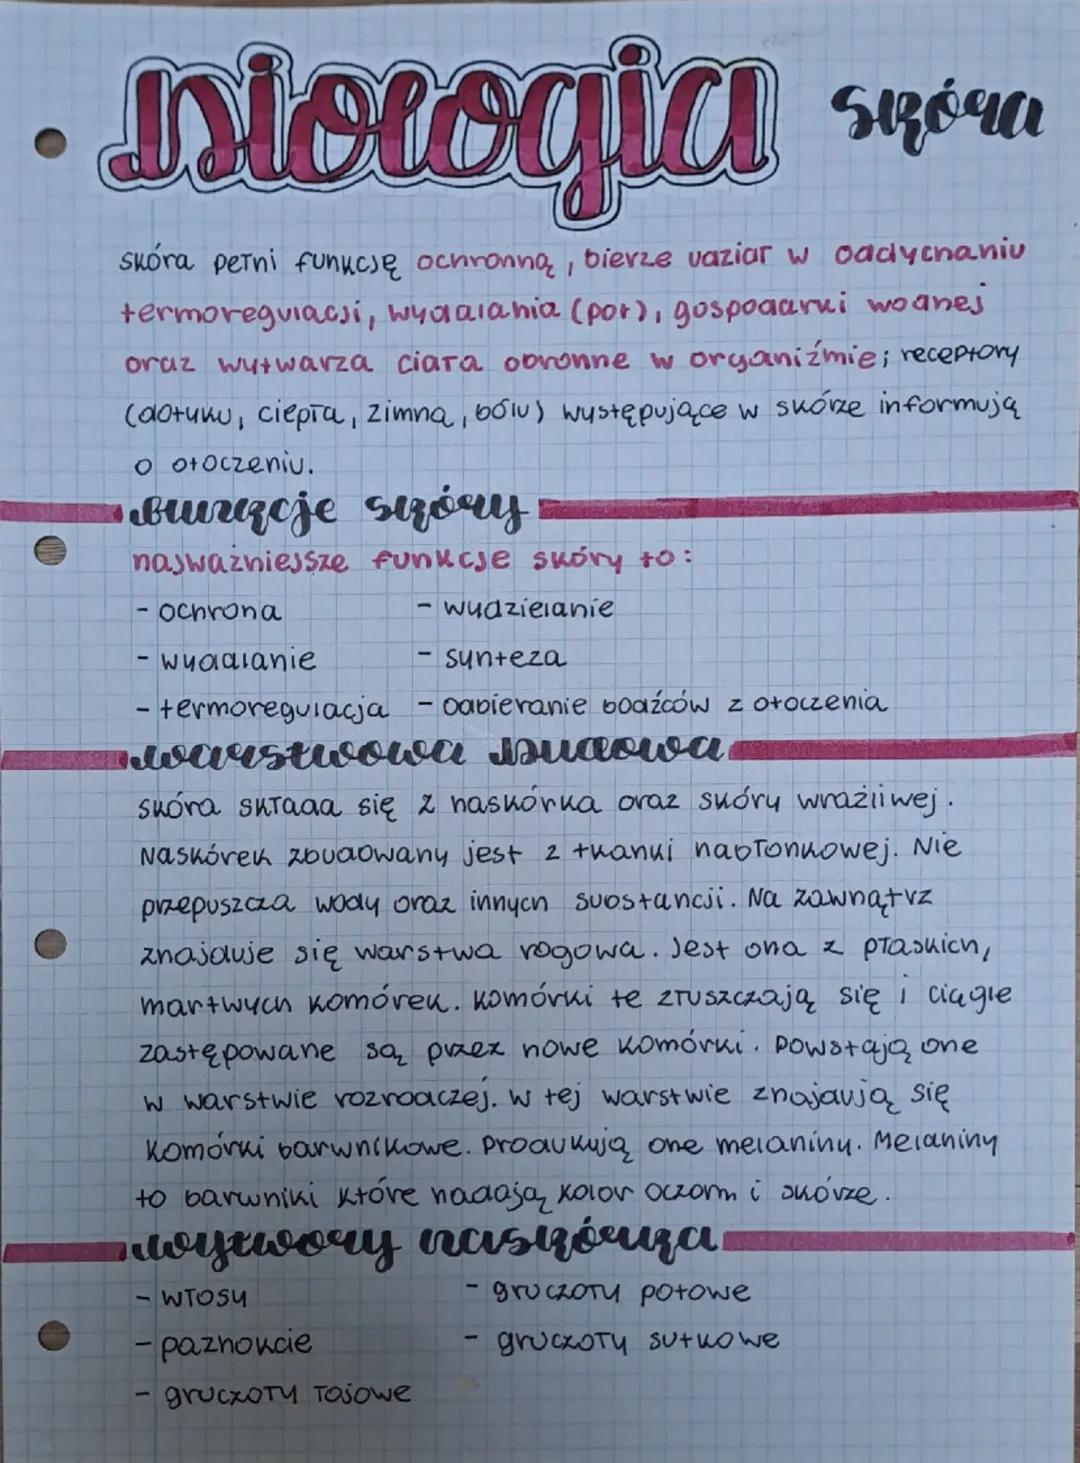 biologia skóra
skóra pełni funkcję ochronną, bierze udział w oddychaniu
termoregulacji, wydalania (pot), gospodarki wodnej
oraz wytwarza ciała obronne w organiźmie; receptory
(dotyku, ciepła, zimna, bólu) występujące w skórze informują
o otoczeniu.
funkcje skóry
najważniejsze funkcje skóry to:
- ochrona - wydzielanie
- wydalanie - synteza
- termoregulacja - odbieranie bodźców z otoczenia
warstwowa budowa
skóra składa się z naskórka oraz skóry wrażliwej.
Naskórek zbudowany jest z tkanki nabłonkowej. Nie
przepuszcza wody oraz innych substancji. Na zawnątrz
znajduje się warstwa rogowa. Jest ona z płaskich,
martwych komórek. Komórki te złuszczają się i ciągle
zastępowane są przez nowe komórki. Powstają one
w warstwie rozrodczej. W tej warstwie znajdują się
komórki barwnikowe. Produkują one melaniny. Melaniny
to barwniki które nadają kolor oczom i skórze.
wytwory naskórka
- włosy - gruczoły potowe
- paznokcie - gruczoły sutkowe
- gruczoły łojowe